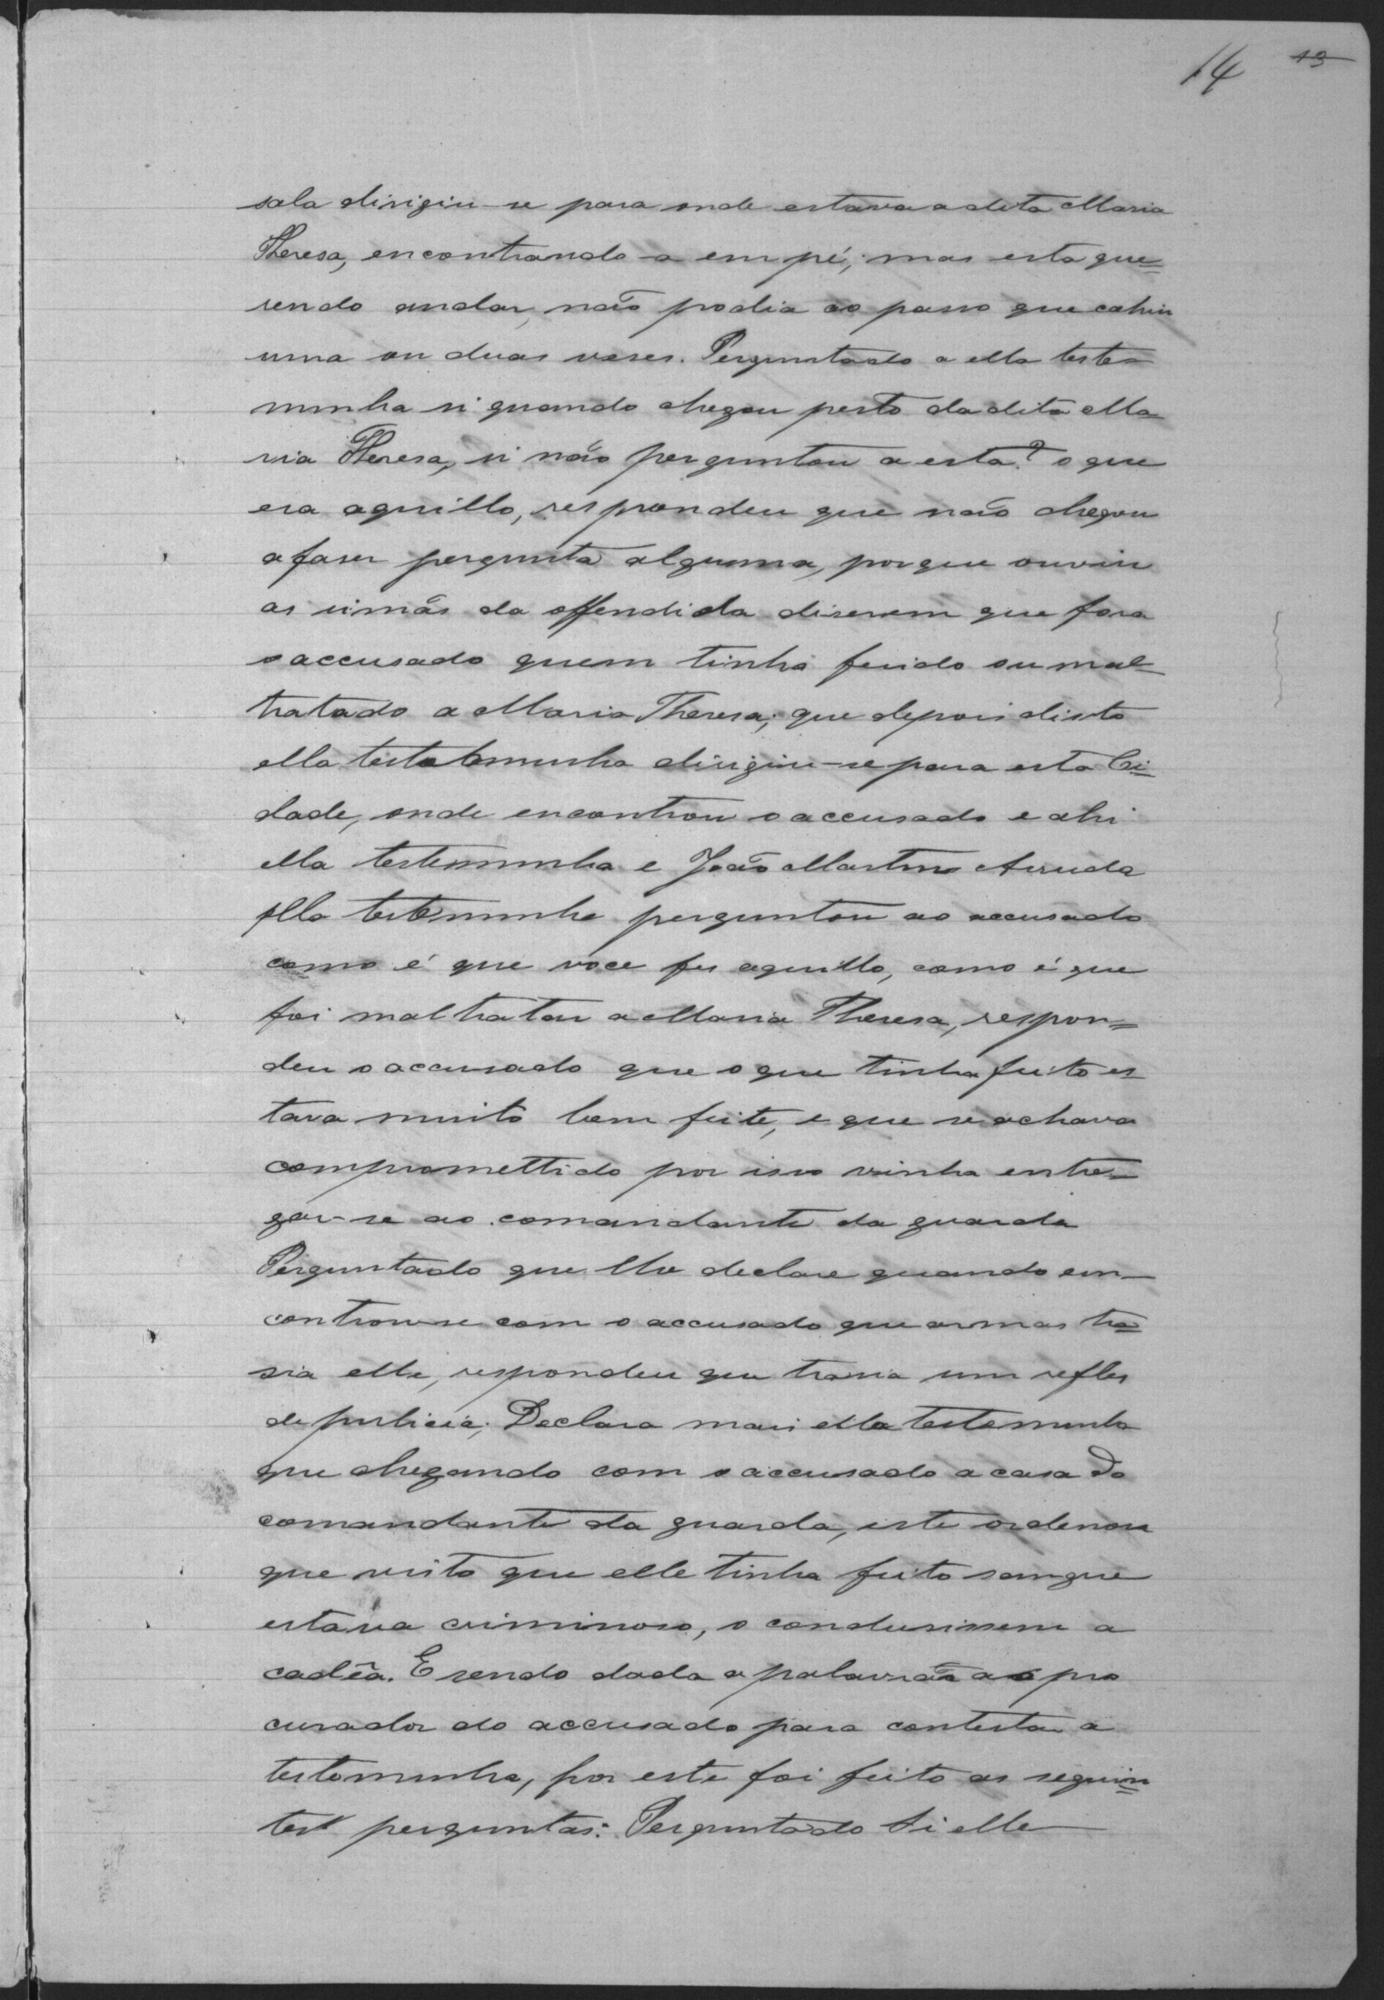 14 13
sala dirigiu-se para onde estava a dita Maria
Theresa, encontrando-a em pé; mas esta que=
rendo andar, não podia ao passo que cahiu
uma ou duas veses. Perguntado a ella teste=
munha si quando chegou perto da dita Ma=
ria Theresa, si não perguntou a esta? o que
era aquillo, respondeu que não chegou
a faser pergunta alguma, porque ouviu
as irmãs da offendida diserem que fora
o accusado quem tinha ferido ou mal=
tratado a Maria Theresa; que depois disto
ella testatemunha dirigiu-se para esta Ci=
dade, onde encontrou o accusado e ahi
ella testemunha e João Martins Arruda
ella testemunha perguntou ao accusado
como é que voce fes aquillo, como é que
foi maltratar a Maria Theresa, respon=
deu o accusado que o que tinha feito es
tava muito bem feito, e que se achava
compromettido por isso vinha entre=
gar-se ao comandante da guarda
Perguntado que lhe declare quando en=
controu-se com o accusado que armas tra=
sia elle, respondeu que trasia um refles
de policia; Declara mais ella testemunha
que chegando com o accusado a casa do
comandante da guarda, este ordenou
que visto que elle tinha feito sangue
estava criminoso, o condusissem a
cadêa. E sendo dada a palavra ao pro
curador do accusado para contestar a
testemunha, por este foi feito as seguin=
tes perguntas: Perguntado si elle